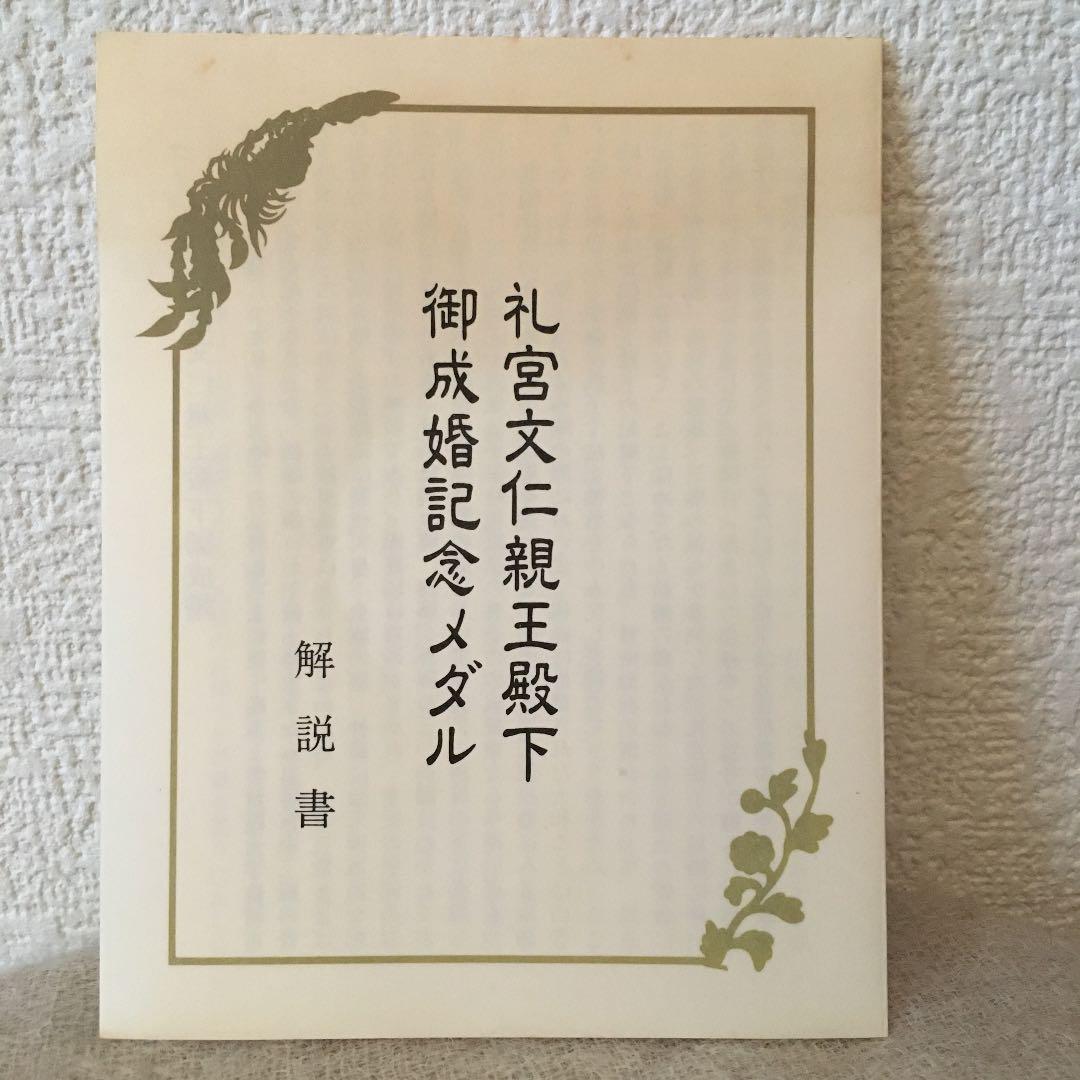 礼宮文仁親王殿下
御成婚記念メダル
解説書